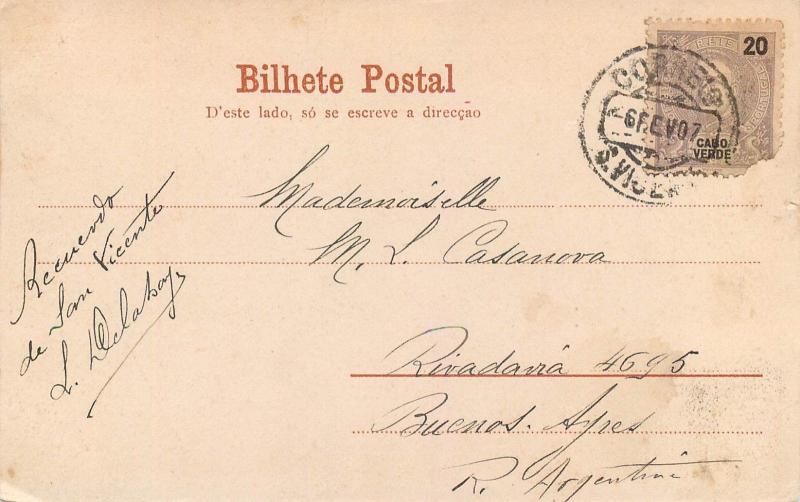 20
CABO
VERDE
CORREIO
6 FEV 07
Bilhete Postal
D'este lado, só se escreve a direcção
Mademoiselle
M. L. Casanova
Rivadavia 4695
Buenos-Ayres
R. Argentina
Recuerdo
de San Vicente
L. Delahay